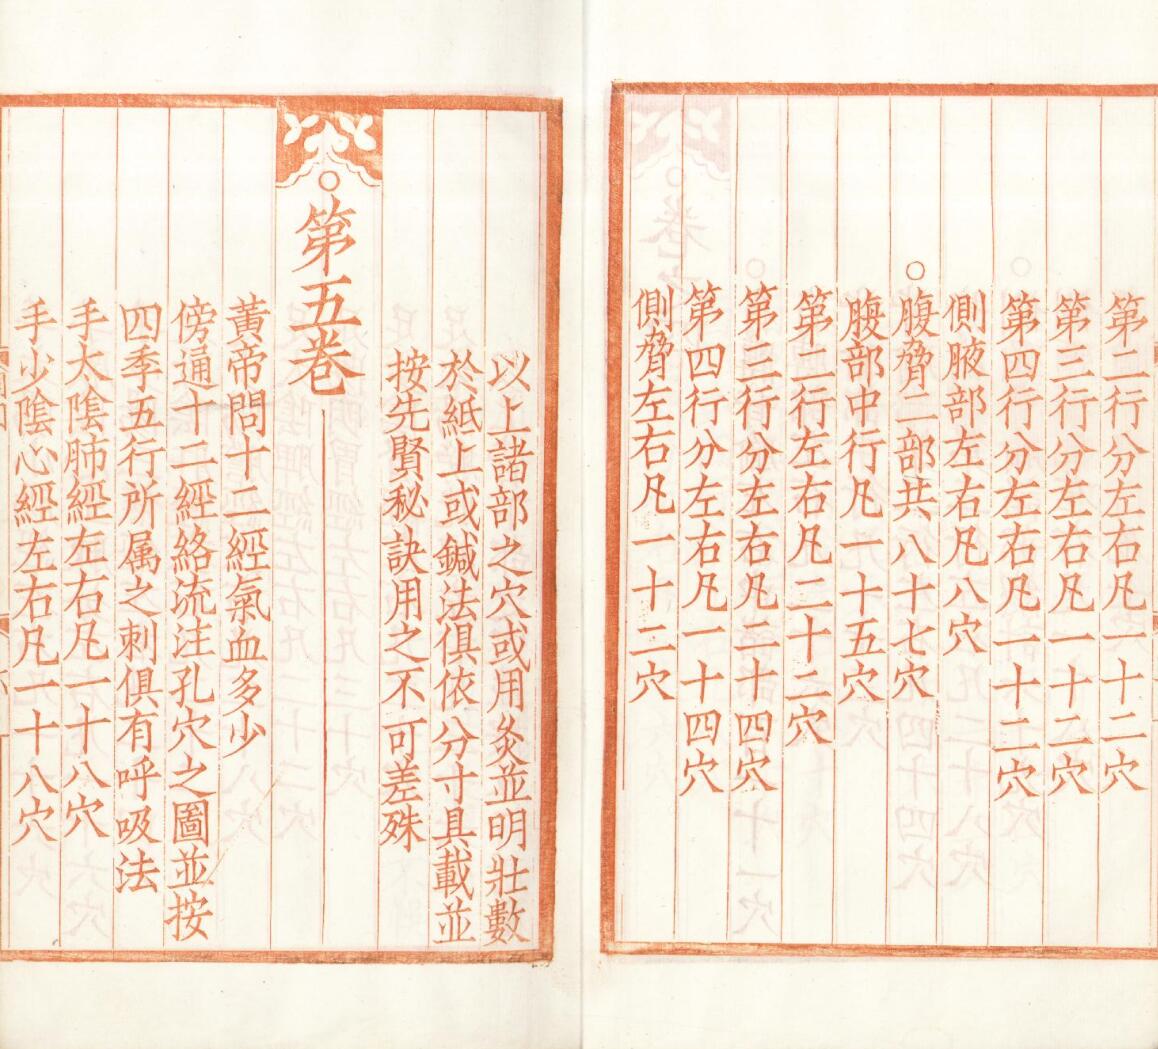 第二行分左右凡一十二穴
第三行分左右凡一十二穴
第四行分左右凡一十二穴
側腋部左右凡八穴
○腹脅二部共八十七穴
腹部中行凡一十五穴
第二行左右凡二十二穴
第三行分左右凡二十四穴
第四行分左右凡一十四穴
側脅左右凡一十二穴
以上諸部之穴或用灸並明壯數
於紙上或鍼法俱依分寸具載並
按先賢秘訣用之不可差殊
○第五卷
黃帝問十二經氣血多少
傍通十二經絡流注孔穴之圖並按
四季五行所属之刺俱有呼吸法
手太陰肺經左右凡一十八穴
手少陰心經左右凡一十八穴